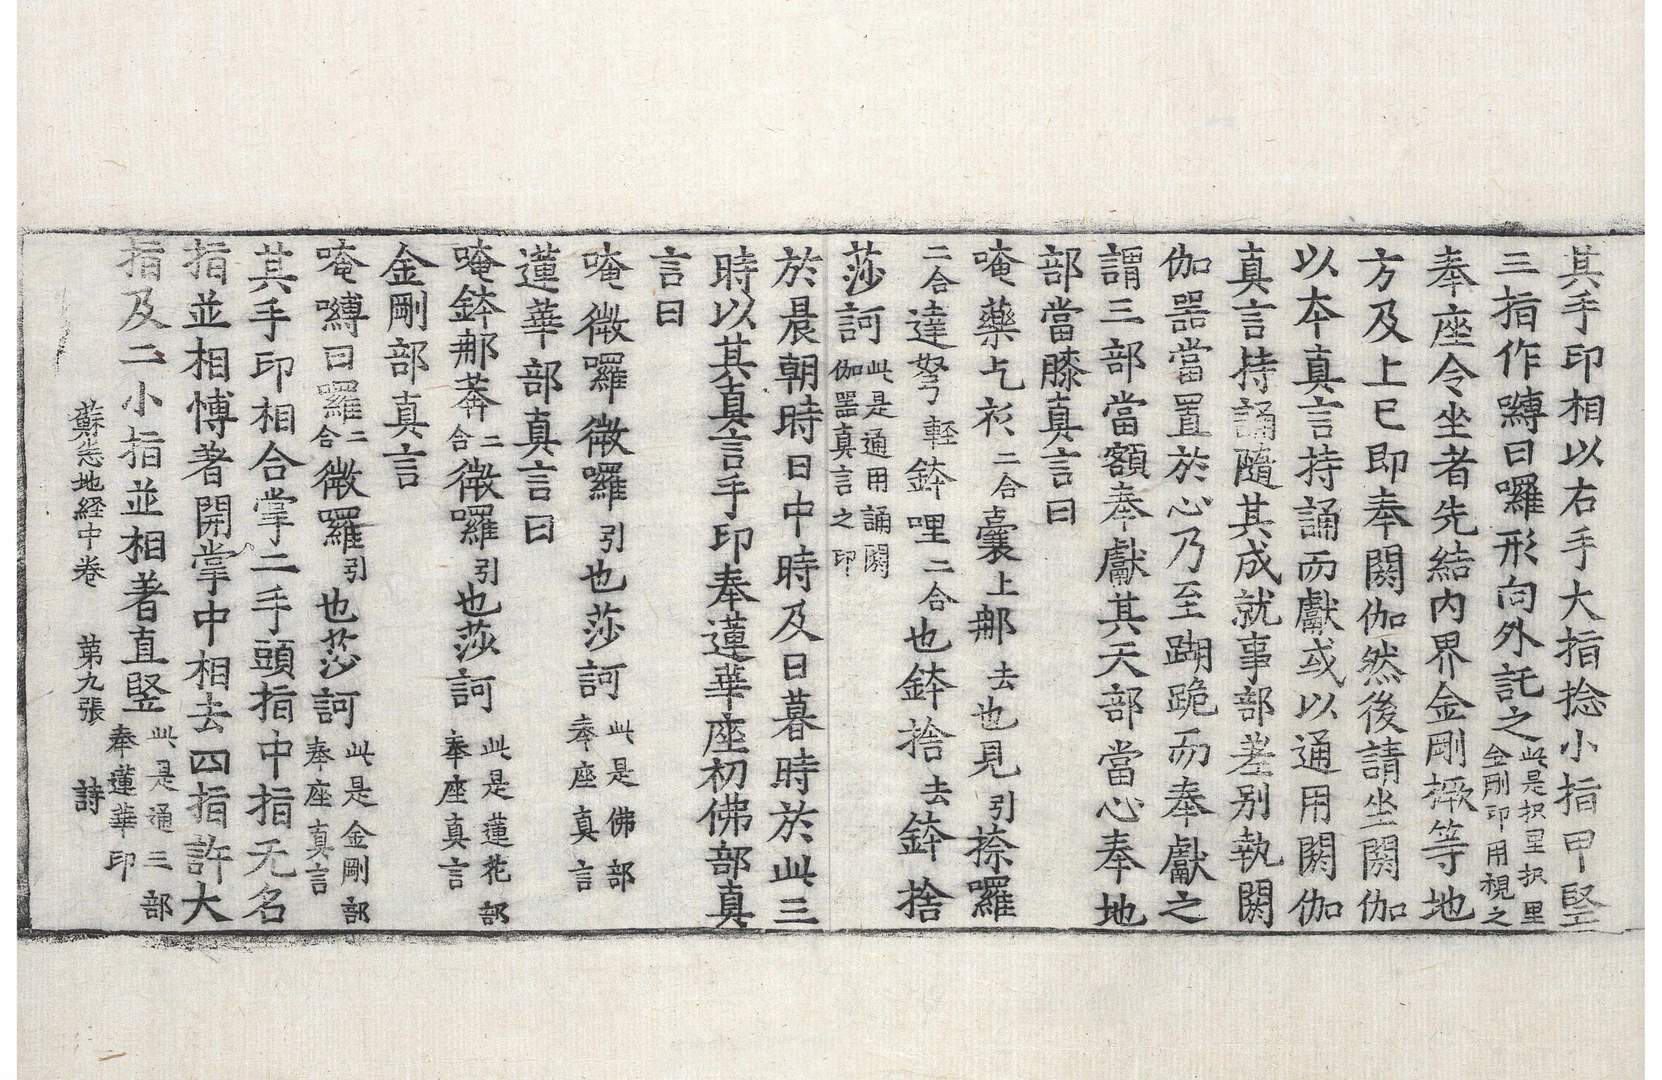 其手印相以右手大指捻小指甲竪
三指作嚩曰囉形向外託之此是枳里枳里金剛印用視之
奉座令坐者先結內界金剛橛等地
方及上已即奉閼伽然後請坐閼伽
以本真言持誦而獻或以通用閼伽
真言持誦隨其成就事部差别執閼
伽器當置於心乃至䠒跪而奉獻之
謂三部當額奉獻其天部當心奉地
部當膝真言曰
唵藥乞衫二合囊上那去也見引捺囉
二合達弩輕鉢哩二合也鉢捨去鉢捨
莎訶此是通用誦閼伽器真言之印
於晨朝時日中時及日暮時於此三
時以其真言手印奉蓮華座初佛部真
言曰
唵微囉微囉引也莎訶此是佛部奉座真言
蓮華部真言曰
唵鉢那莾二合微囉引也莎訶此是蓮花部奉座真言
金剛部真言
唵嚩曰羅二合微羅引也莎訶此是金剛部奉座真言
其手印相合掌二手頭指中指无名
指並相愽著開掌中相去四指許大
指及二小指並相著直竪此是通三部奉蓮華印
蘇悉地経中卷　第九張　詩